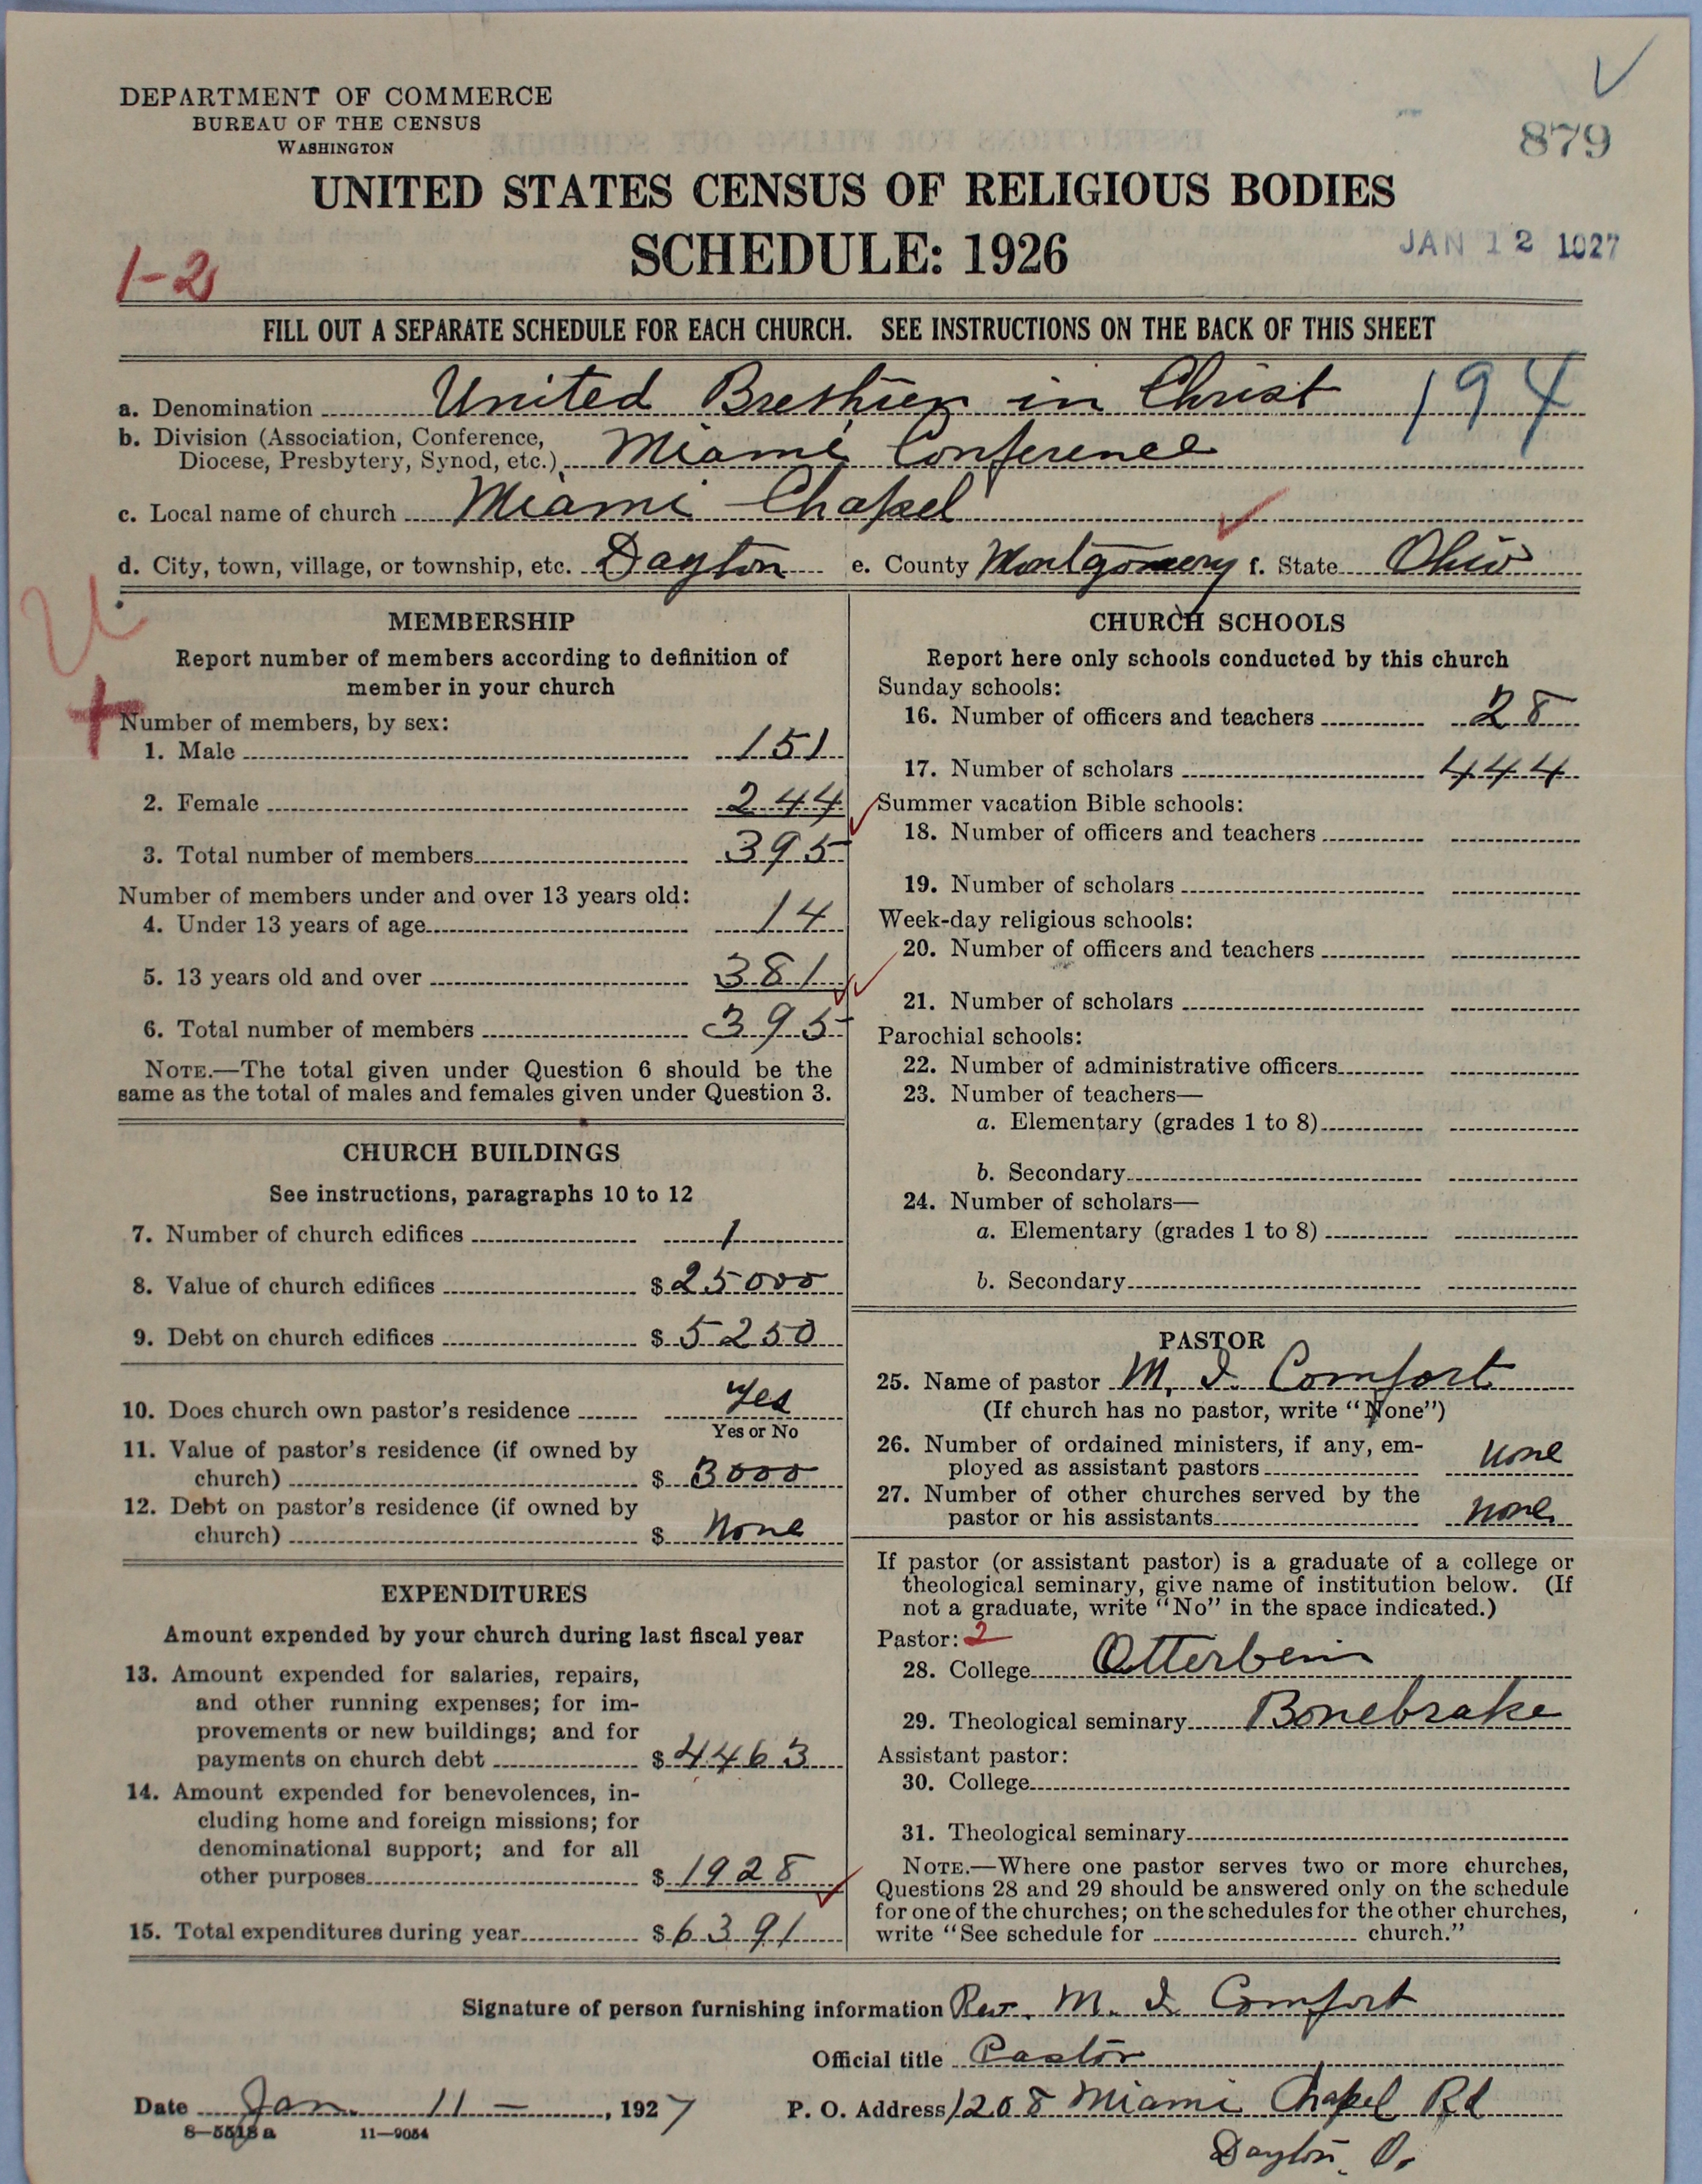 DEPARTMENT OF COMMERCE
BUREAU OF THE CENSUS
WASHINGTON
879
UNITED STATES CENSUS OF RELIGIOUS BODIES
SCHEDULE: 1926
JAN 12 1927
1-2
FILL OUT A SEPARATE SCHEDULE FOR EACH CHURCH. SEE INSTRUCTIONS ON THE BACK OF THIS SHEET
a. Denomination United Brethren in Christ 194
b. Division (Association, Conference,
Diocese, Presbytery, Synod, etc.) Miami Conference
c. Local name of church Miami Chapel
d. City, town, village, or township, etc. Dayton e. County Montgomery f. State Ohio
MEMBERSHIP
Report number of members according to definition of
member in your church
Number of members, by sex:
1. Male 151
2. Female 244
3. Total number of members 395
Number of members under and over 13 years old:
4. Under 13 years of age 14
5. 13 years old and over 381
6. Total number of members 395
NOTE.—The total given under Question 6 should be the
same as the total of males and females given under Question 3.
CHURCH BUILDINGS
See instructions, paragraphs 10 to 12
7. Number of church edifices 1
8. Value of church edifices $ 25000
9. Debt on church edifices $ 5250
10. Does church own pastor's residence Yes
Yes or No
11. Value of pastor's residence (if owned by
church) $ 3000
12. Debt on pastor's residence (if owned by
church) $ None
EXPENDITURES
Amount expended by your church during last fiscal year
13. Amount expended for salaries, repairs,
and other running expenses; for im-
provements or new buildings; and for
payments on church debt $ 4463
14. Amount expended for benevolences, in-
cluding home and foreign missions; for
denominational support; and for all
other purposes $ 1928
15. Total expenditures during year $ 6391
CHURCH SCHOOLS
Report here only schools conducted by this church
Sunday schools:
16. Number of officers and teachers 28
17. Number of scholars 444
Summer vacation Bible schools:
18. Number of officers and teachers
19. Number of scholars
Week-day religious schools:
20. Number of officers and teachers
21. Number of scholars
Parochial schools:
22. Number of administrative officers
23. Number of teachers—
a. Elementary (grades 1 to 8)
b. Secondary
24. Number of scholars—
a. Elementary (grades 1 to 8)
b. Secondary
PASTOR
25. Name of pastor M. I. Comfort
(If church has no pastor, write "None")
26. Number of ordained ministers, if any, em-
ployed as assistant pastors none
27. Number of other churches served by the
pastor or his assistants none
If pastor (or assistant pastor) is a graduate of a college or
theological seminary, give name of institution below. (If
not a graduate, write "No" in the space indicated.)
Pastor: 2
28. College Otterbein
29. Theological seminary Bonebrake
Assistant pastor:
30. College
31. Theological seminary
NOTE.—Where one pastor serves two or more churches,
Questions 28 and 29 should be answered only on the schedule
for one of the churches; on the schedules for the other churches,
write "See schedule for church."
Signature of person furnishing information Rev. M. I. Comfort
Official title Pastor
Date Jan. 11 —, 1927 P. O. Address 1208 Miami Chapel Rd
8—5513a 11—9054
Dayton, O.